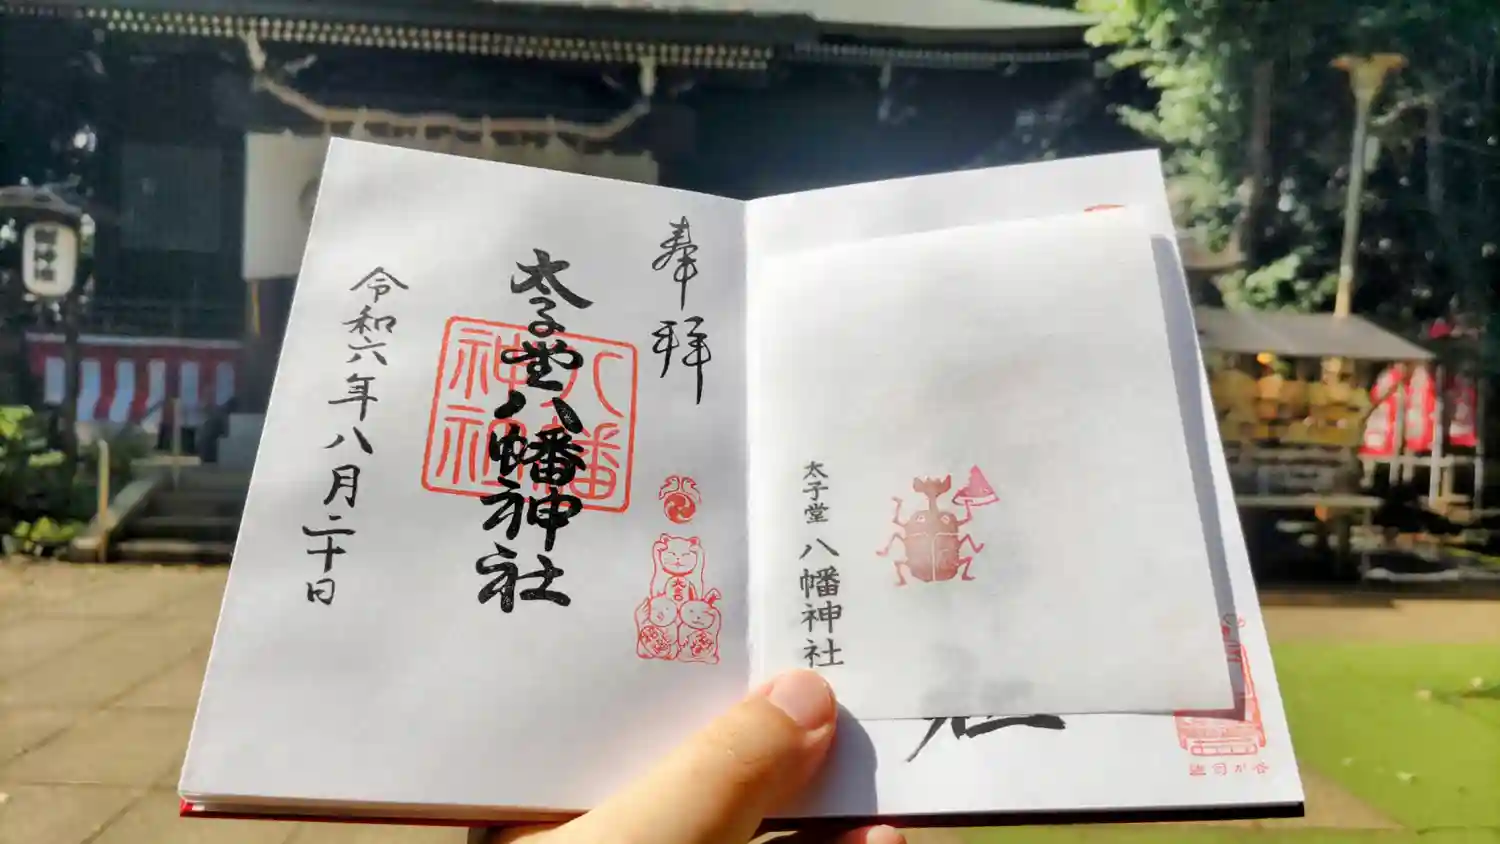 奉拝
太子堂八幡神社
八幡神社
大吉
令和六年八月二十日
太子堂 八幡神社